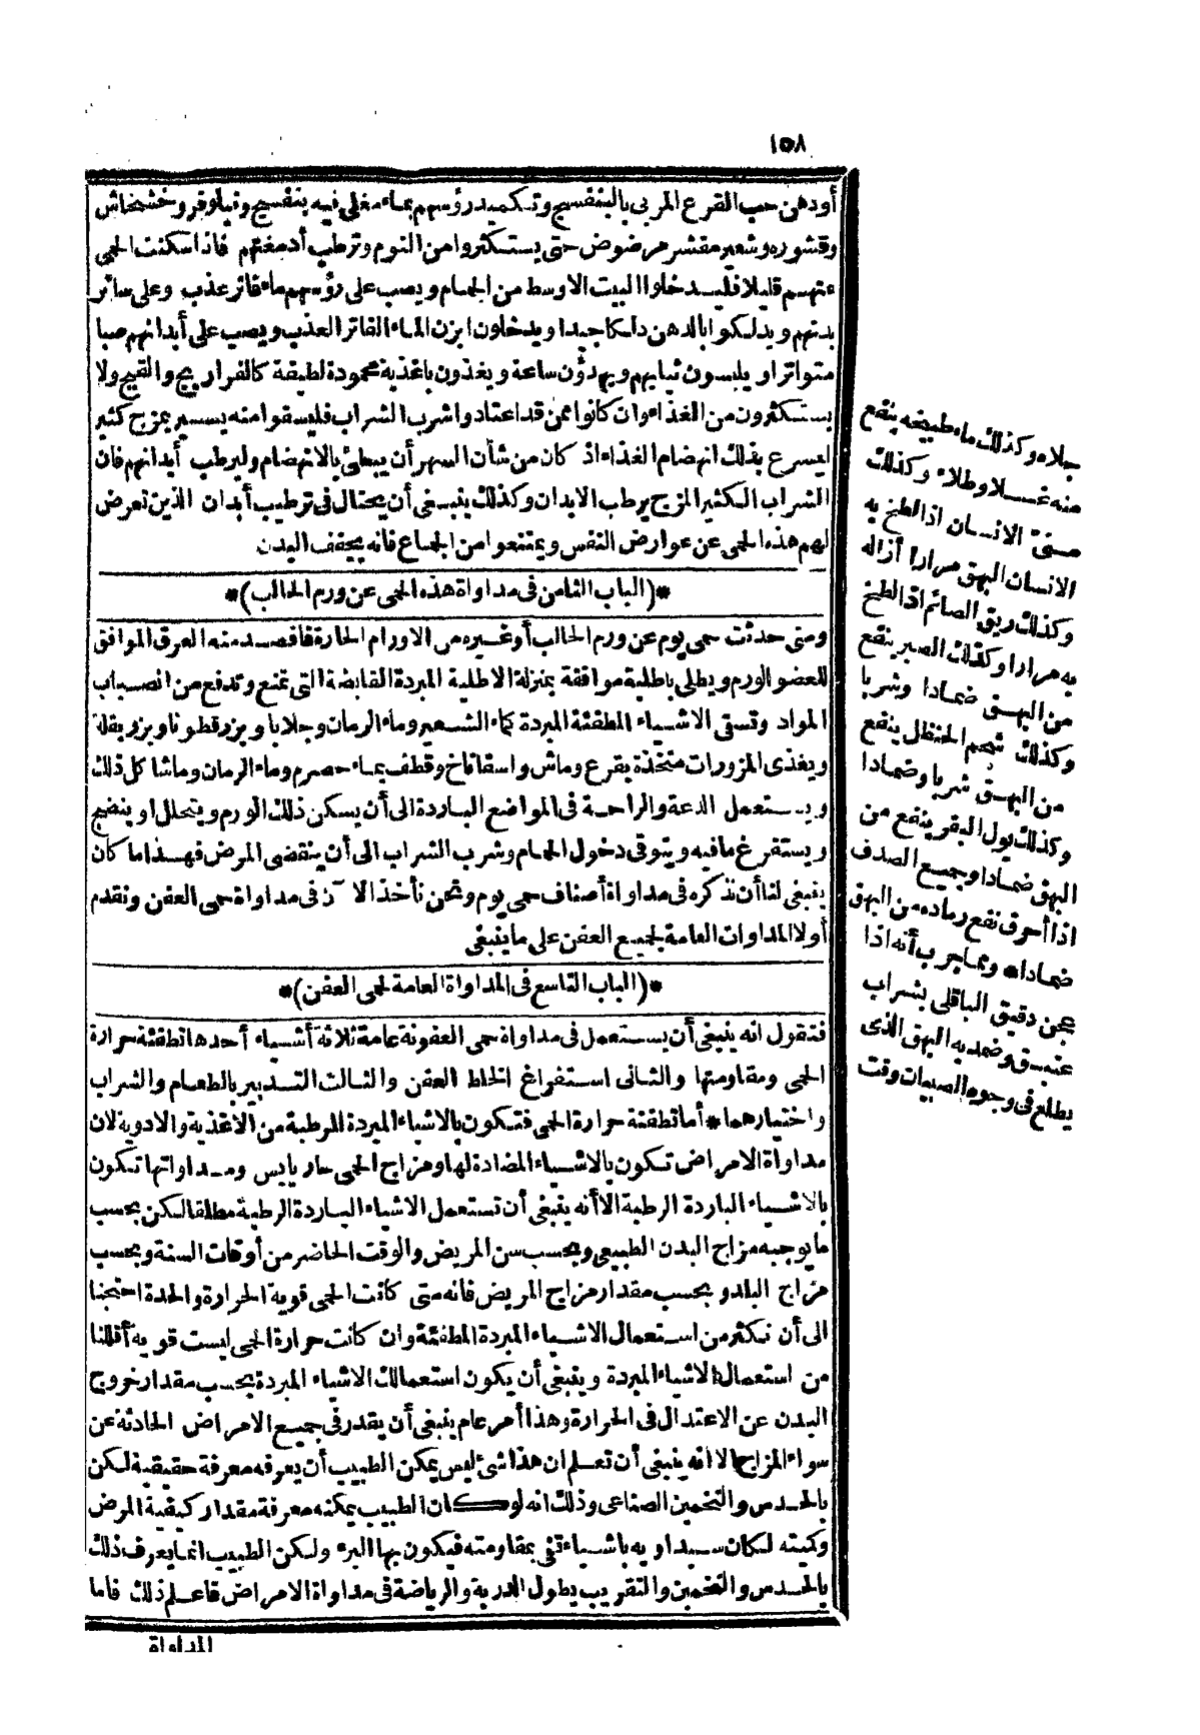 ١٥٨
أو دهن حب القرع المربى بالبنفسج وتكميد رؤسهم بماء مغلى فيه بنفسج ونيلوفر وخشخاش
وقشوره وشعير مقشر مرضوض حتى يستكثروا من النوم وترطب أدمغتهم فاذا سكنت الحمى
عنهم قليلا فليدخلوا البيت الاوسط من الحمام ويصب على رؤسهم ماء فاتر عذب وعلى سائر
بدنهم ويدلكوا بالدهن دلكا جيدا ويدخلون ابزن الماء الفاتر العذب ويصب على أبدانهم صبا
متواترا ويلبسون ثيابهم ويهدؤن ساعة ويغذون باغذية محمودة لطيفة كالفراريج والقبج ولا
يستكثرون من الغذاء وان كانوا ممن قد اعتادوا شرب الشراب فليسقوا منه يسير بمزج كثير
ليسرع بذلك انهضام الغذاء اذ كان من شأن السهر أن يبطئ بالانهضام وليرطب أبدانهم فان
الشراب الكثير المزج يرطب الابدان وكذلك ينبغى أن يحتال فى ترطيب أبدان الذين تعرض
لهم هذه الحمى عن عوارض النفس ويمتنعوا من الجماع فانه يجفف البدن
*(الباب الثامن فى مداواة هذه الحمى عن ورم الحالب)*
ومتى حدثت حمى يوم عن ورم الحالب أو غيره من الاورام الحارة فافصد منه العرق الموافق
للعضو الورم ويطلى باطلية موافقة بمنزلة الاطلية المبردة القابضة التى تمنع وتدفع من انصباب
المواد وتسقى الاشياء المطفئة المبردة كماء الشعير وماء الرمان وجلابا وبزر قطونا وبزر بقلة
ويغذى المزورات متخذة بقرع وماش واسفاناخ وقطف بماء حصرم وماء الرمان وماشا كل ذلك
ويستعمل الدعة والراحة فى المواضع الباردة الى أن يسكن ذلك الورم ويتحلل او ينضج
ويستفرغ مافيه ويتوقى دخول الحمام وشرب الشراب الى أن ينقضى المرض فهذا ما كان
ينبغى لنا أن نذكره فى مداواة أصناف حمى يوم ونحن نأخذ الآن فى مداواة حمى العفن ونقدم
أولا المداوات العامة لجميع العفن على ما ينبغى
*(الباب التاسع فى المداواة العامة لحمى العفن)*
فنقول انه ينبغى أن يستعمل فى مداواة حمى العفونة عامة ثلاثة أشياء أحدها تطفئة حرارة
الحمى ومقاومتها والثانى استفراغ الخلط العفن والثالث التدبير بالطعام والشراب
واختيارهما * أما تطفئة حرارة الحمى فتكون بالاشياء المبردة المرطبة من الاغذية والادوية لان
مداواة الامراض تكون بالاشياء المضادة لها ومزاج الحمى حار يابس ومداواتها تكون
بالاشياء الباردة الرطبة الا أنه ينبغى أن تستعمل الاشياء الباردة الرطبة مطلقا لكن بحسب
ما يوجبه مزاج البدن الطبيعى وبحسب سن المريض والوقت الحاضر من أوقات السنة وبحسب
مزاج البلد وبحسب مقدار مزاج المريض فانه متى كانت الحمى قوية الحرارة والحدة احتجنا
الى أن نكثر من استعمال الاشياء المبردة المطفئة وان كانت حرارة الحمى ليست قوية أقللنا
من استعمال الاشياء المبردة وينبغى أن يكون استعمالك الاشياء المبردة بحسب مقدار خروج
البدن عن الاعتدال فى الحرارة وهذا أمر عام ينبغى أن يقدر فى جميع الامراض الحادثة عن
سواء المزاج الا انه ينبغى أن تعلم ان هذا شئ ليس يمكن الطبيب أن يعرفه معرفة حقيقية لكن
بالحدس والتخمين الصناعى وذلك انه لو كان الطبيب يمكنه معرفة مقدار كيفية المرض
وكميته لكان سيداويه باشياء تفى بمقاومته فيكون بها البرء ولكن الطبيب انما يعرف ذلك
بالحدس والتخمين والتقريب بطول الدربة والرياضة فى مداواة الامراض فاعلم ذلك فاما
المداواة
جلاه وكذلك ماء طبيخه ينفع
منه غسلا وطلاء وكذلك
منى الانسان اذا لطخ به
الانسان البهق مرارا أزاله
وكذلك ريق الصائم اذا لطخ
به مرارا وكذلك الصبر ينفع
من البهق ضمادا وشربا
وكذلك شحم الحنظل ينفع
من البهق شربا وضمادا
وكذلك بول البقر ينفع من
البهق ضمادا وجميع الصدف
اذا أحرق نفع رماده من البهق
ضمادا* ومما جرب أنه اذا
عجن دقيق الباقلى بشراب
عتيق وضمد به البهق الذى
يطلع فى وجوه الصبيان وقت